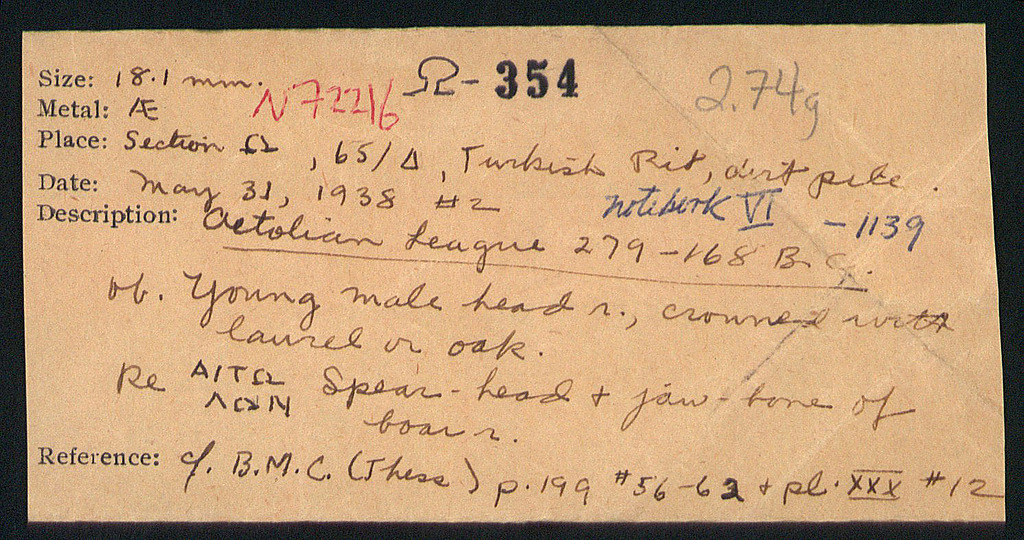 Size: 18.1 mm. Ω-354 2.74g
Metal: Æ N72216
Place: Section Ω, 65/Δ, Turkish Pit, dirt pile.
Date: May 31, 1938 #2 notebook VI - 1139
Description: Aetolian League 279-168 B.C.
ob. Young male head r., crowned with
laurel or oak.
Re ΑΙΤΩ Spear-head + jaw-bone of
ΛΩΝ boar r.
Reference: cf. B.M.C. (Thess) p. 199 #56-62 + pl. XXX #12